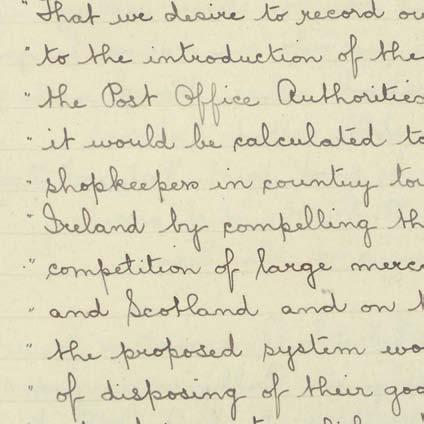 "That we desire to record ou
" to the introduction of the
" the Post Office Authorities
" it would be calculated to
" shopkeepers in country to
" Ireland by compelling th
" competition of large merc
" and Scotland and on t
" the proposed system wo
" of disposing of their goo